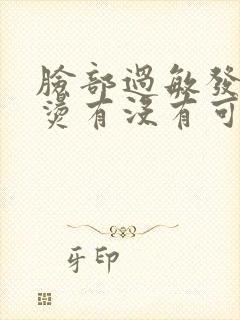 臉部過敏發
燙有沒有可
牙印